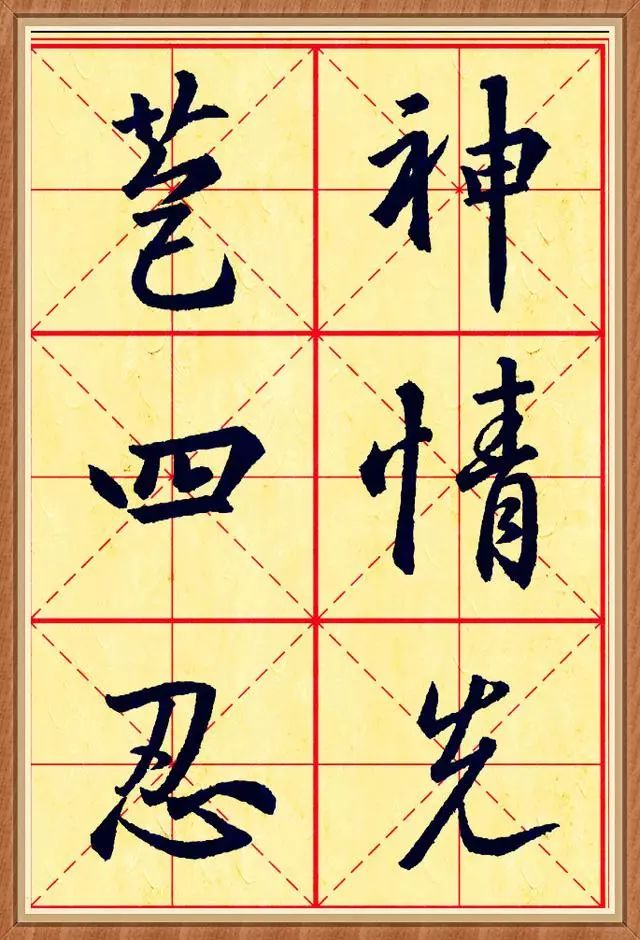 神情先
苞四忍